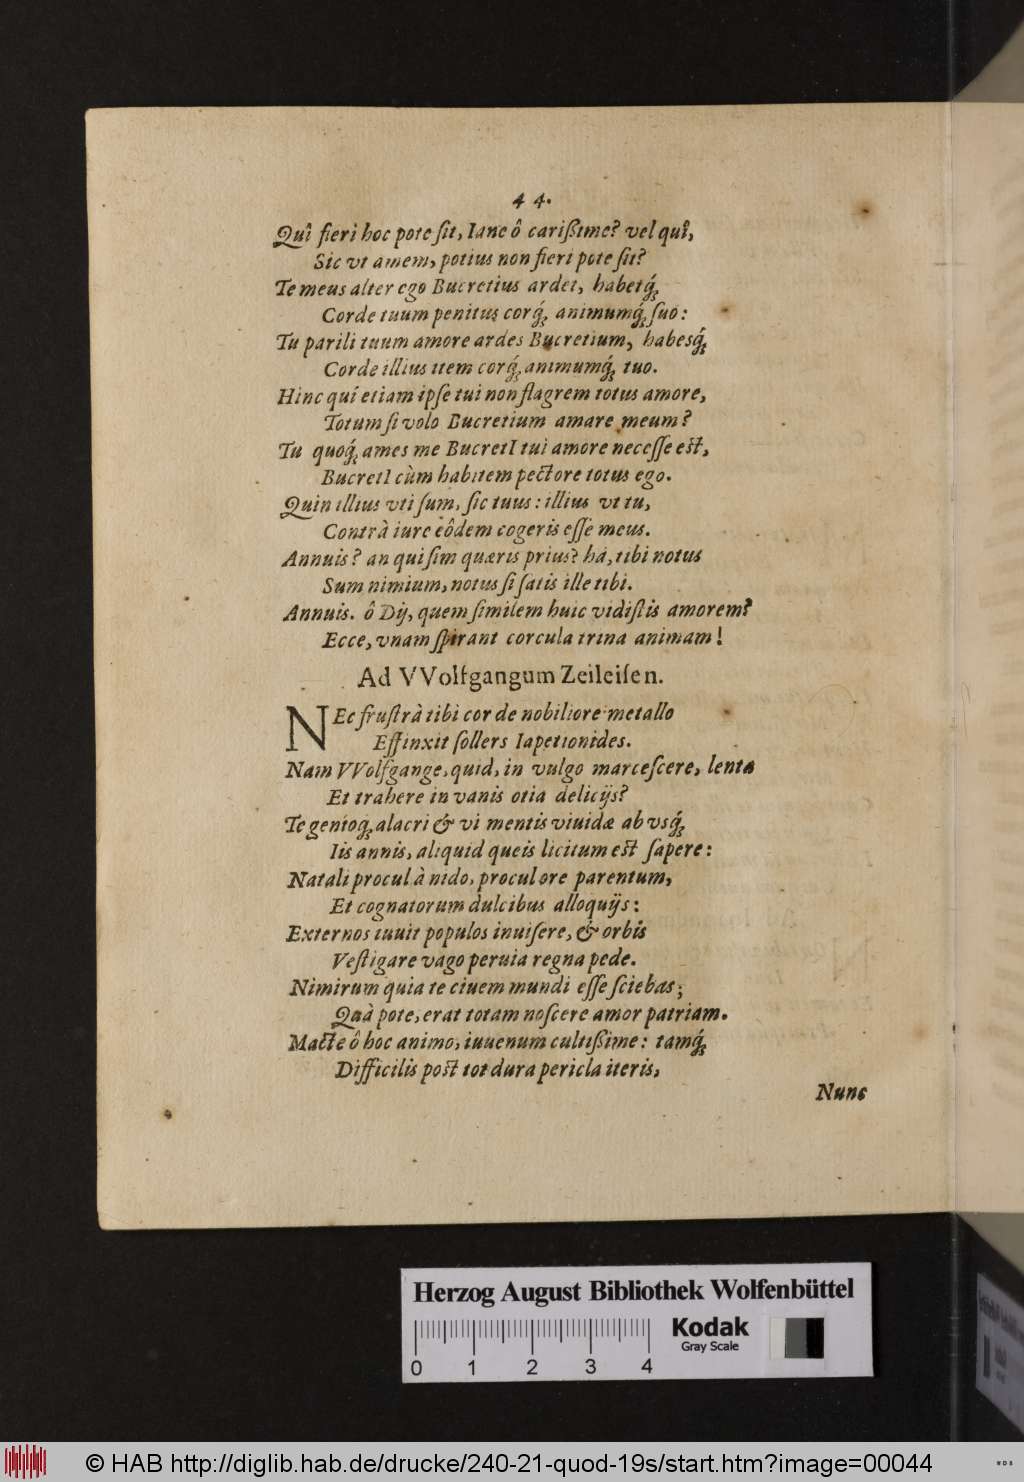 44.
Quî fieri hoc pote ſit, Iane ô carißime? vel quî,
Sic vt amem, potius non fieri pote ſit?
Te meus alter ego Bucretius ardet, habetq́;
Corde tuum penitus corq́; animumq́; ſuo:
Tu parili tuum amore ardes Bucretium, habesq́;
Corde illius item corq́; animumq́; tuo.
Hinc quí etiam ipſe tui non flagrem totus amore,
Totum ſi volo Bucretium amare meum?
Tu quoq́; ames me BucretI tui amore neceſſe eſt,
BucretI cùm habitem pectore totus ego.
Quin illius vti ſum, ſic tuus: illius vt tu,
Contrà iure eôdem cogeris eſſe meus.
Annuis? an qui ſim quæris prius? há, tibi notus
Sum nimium, notus ſi ſatis ille tibi.
Annuis. ô Dij, quem ſimilem huic vidiſtis amorem?
Ecce, vnam ſpirant corcula trina animam!
Ad VVolfgangum Zeileiſen.
NEc fruſtrà tibi cor de nobiliore metallo
Effinxit ſollers Iapetionides.
Nam VVolfgange, quid, in vulgo marceſcere, lenta
Et trahere in vanis otia delicijs?
Te genioq́; alacri & vi mentis viuidæ ab vsq́;
Iis annis, aliquid queis licitum eſt ſapere:
Natali procul à nido, procul ore parentum,
Et cognatorum dulcibus alloquijs:
Externos iuuit populos inuiſere, & orbis
Veſtigare vago peruia regna pede.
Nimirum quia te ciuem mundi eſſe ſciebas;
Quà pote, erat totam noſcere amor patriam.
Macte ô hoc animo, iuuenum cultißime: tamq́;
Difficilis poſt tot dura pericla iteris,
Nunc
Herzog August Bibliothek Wolfenbüttel
Kodak
Gray Scale
0 1 2 3 4
© HAB http://diglib.hab.de/drucke/240-21-quod-19s/start.htm?image=00044